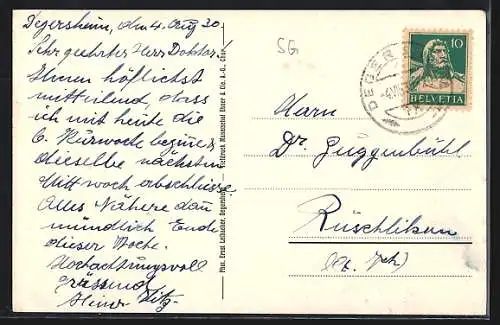 Degersheim, den 4. Aug 30.
Sehr geehrter Herr Doktor!
Ihnen höflichst
mitteilend, dass
ich mit heute die
6. Kurwoche beginne &
dieselbe nächsten
Mittwoch abschliesse.
Alles Nähere dann
mündlich Ende
dieser Woche.
Hochachtungsvoll
grüssend
SG
10
HELVETIA
DEGER
Herrn
Dr. Guggenbühl
Rüschlikon
(Kt. Zch)